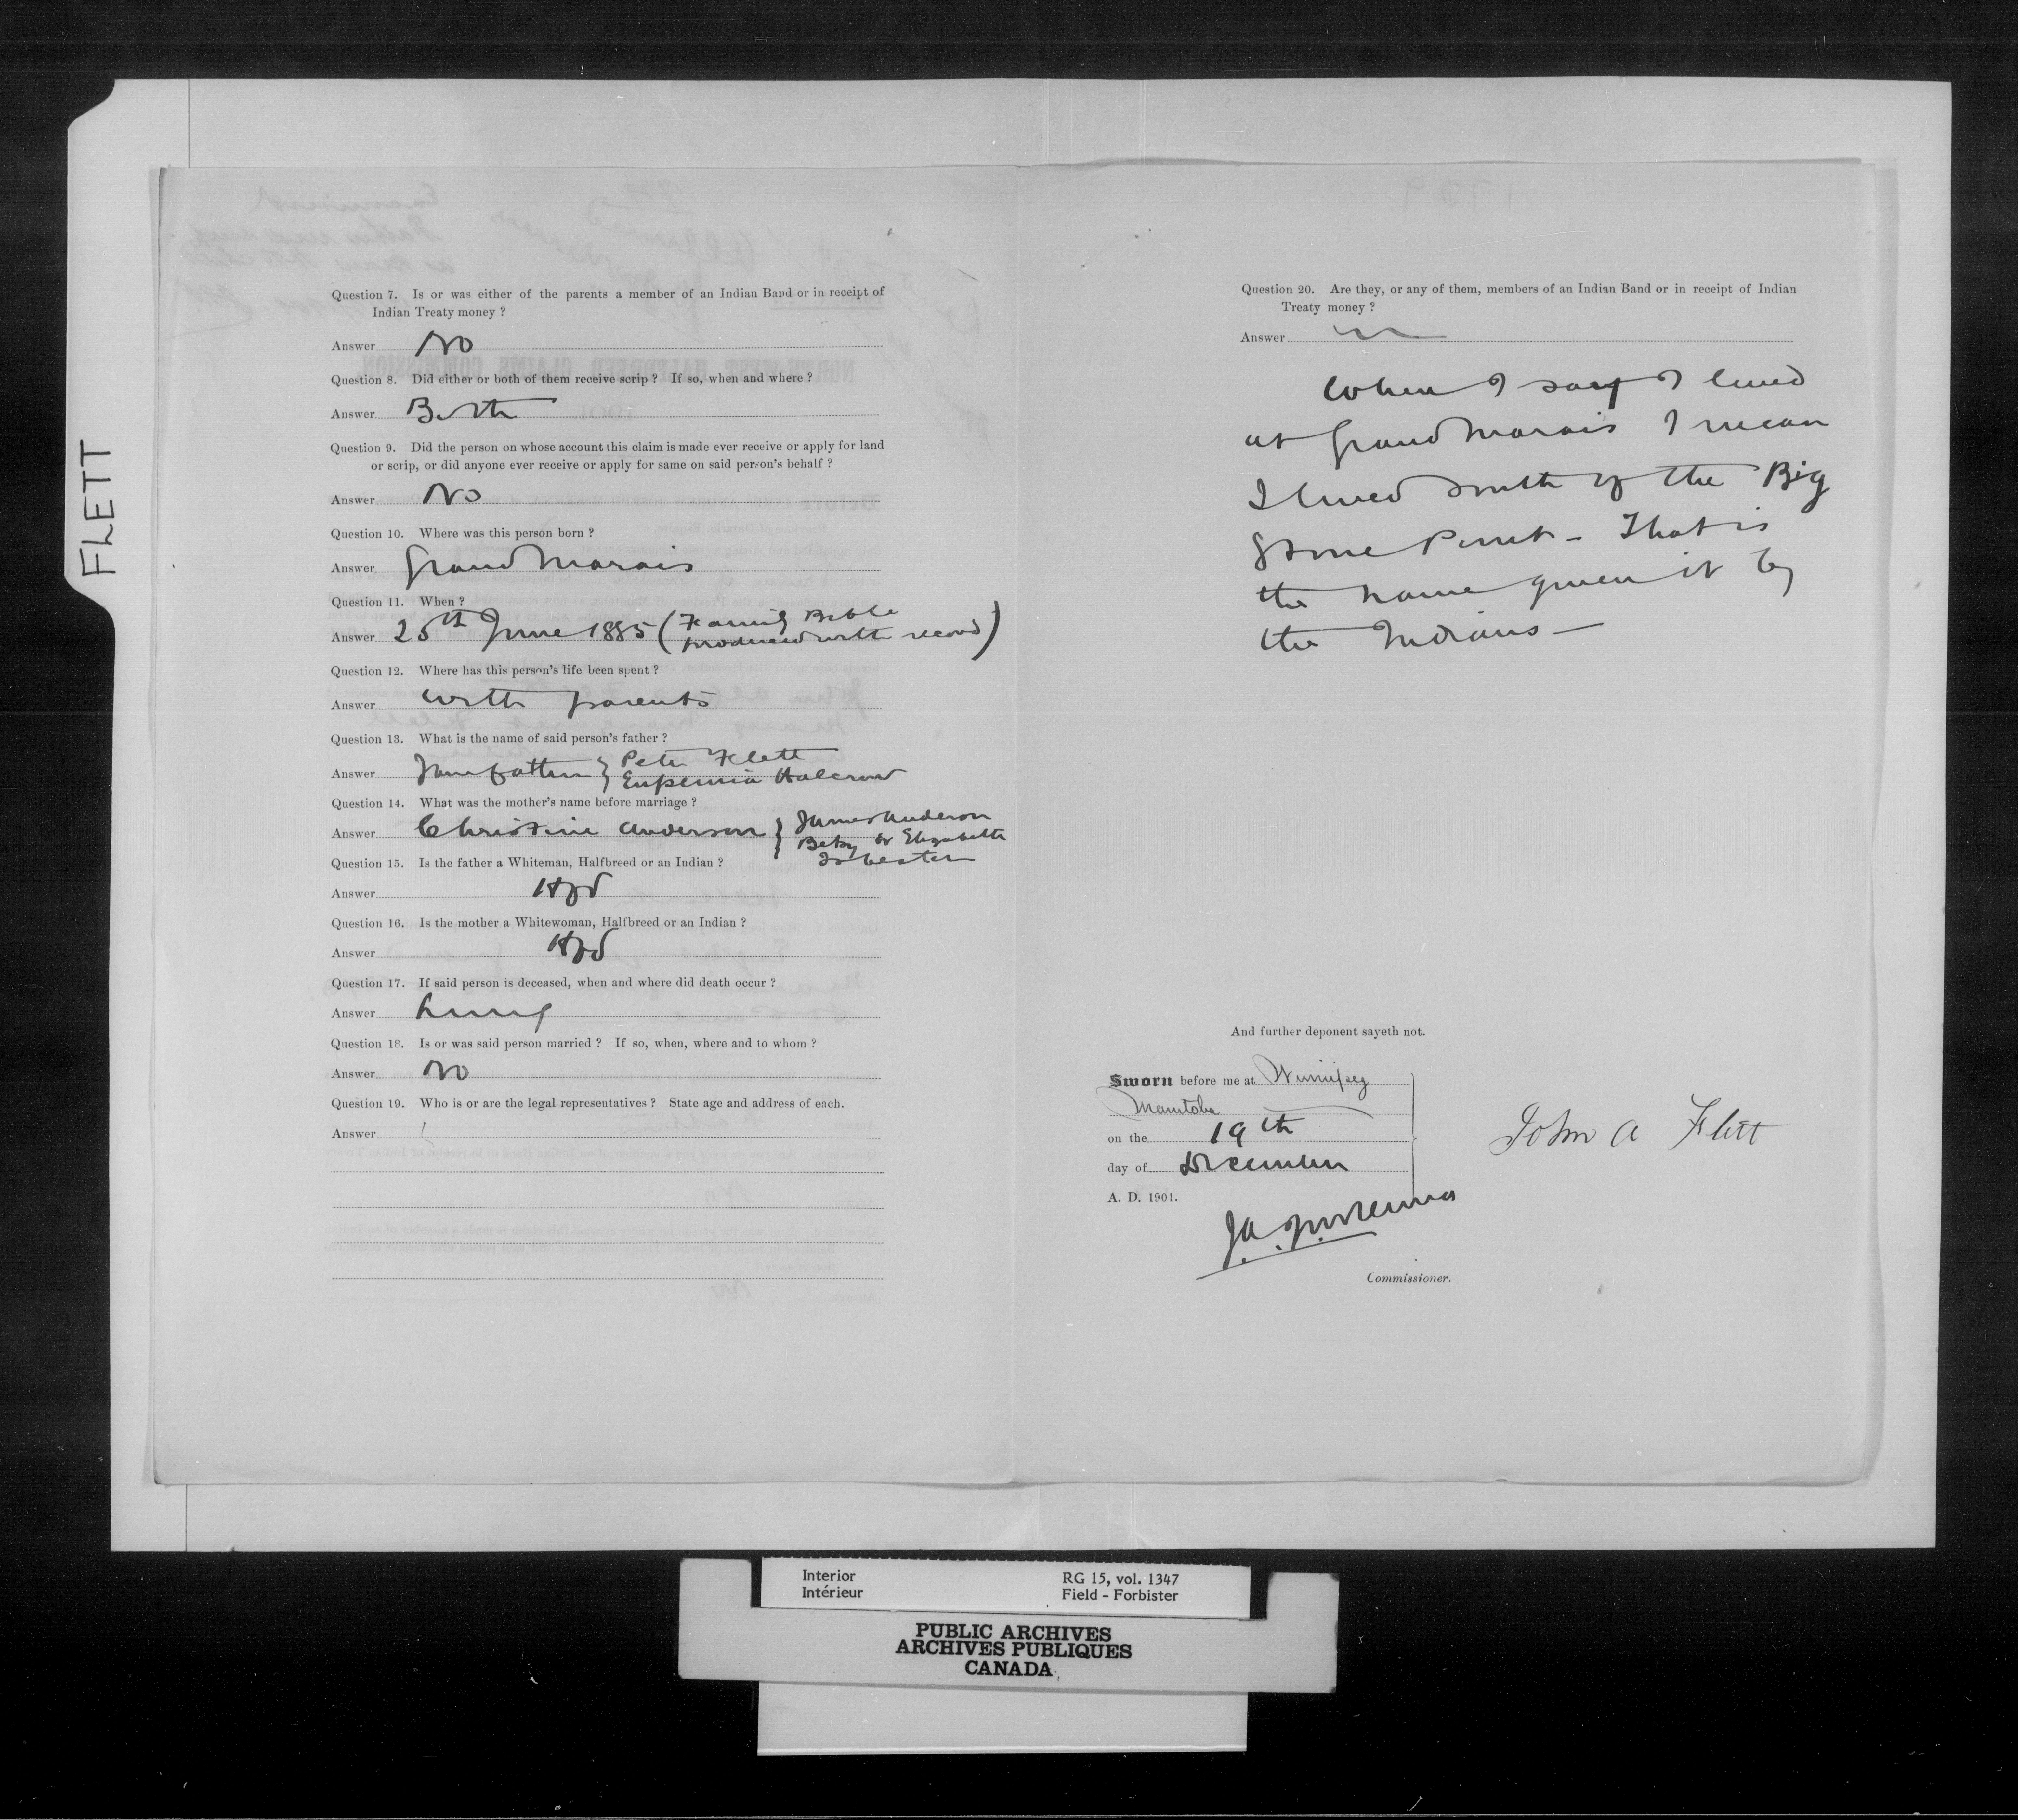 FLETT
Question 7. Is or was either of the parents a member of an Indian Band or in receipt of
Indian Treaty money ?
Answer No
Question 8. Did either or both of them receive scrip ? If so, when and where ?
Answer Both
Question 9. Did the person on whose account this claim is made ever receive or apply for land
or scrip, or did anyone ever receive or apply for same on said person's behalf ?
Answer No
Question 10. Where was this person born ?
Answer Grand Marais
Question 11. When ?
Answer 25th June 1885 (Family Bible
produced with record)
Question 12. Where has this person's life been spent ?
Answer with parents
Question 13. What is the name of said person's father ?
Answer } Peter Flett
Eupemia Halcrow
Question 14. What was the mother's name before marriage ?
Answer Christine Anderson } James Anderson
Betsy or Elizabeth
Isbester
Question 15. Is the father a Whiteman, Halfbreed or an Indian ?
Answer Hfd
Question 16. Is the mother a Whitewoman, Halfbreed or an Indian ?
Answer Hfd
Question 17. If said person is deceased, when and where did death occur ?
Answer Living
Question 18. Is or was said person married ? If so, when, where and to whom ?
Answer No
Question 19. Who is or are the legal representatives ? State age and address of each.
Answer
Question 20. Are they, or any of them, members of an Indian Band or in receipt of Indian
Treaty money ?
Answer
When I say I lived
at Grand Marais I mean
I lived south of the Big
Stone Point - That is
the name given it by
the Indians -
And further deponent sayeth not.
Sworn before me at Winnipeg
Manitoba
on the 19th
day of December
A. D. 1901.
John A Flett
Commissioner.
Interior
Intérieur
RG 15, vol. 1347
Field - Forbister
PUBLIC ARCHIVES
ARCHIVES PUBLIQUES
CANADA